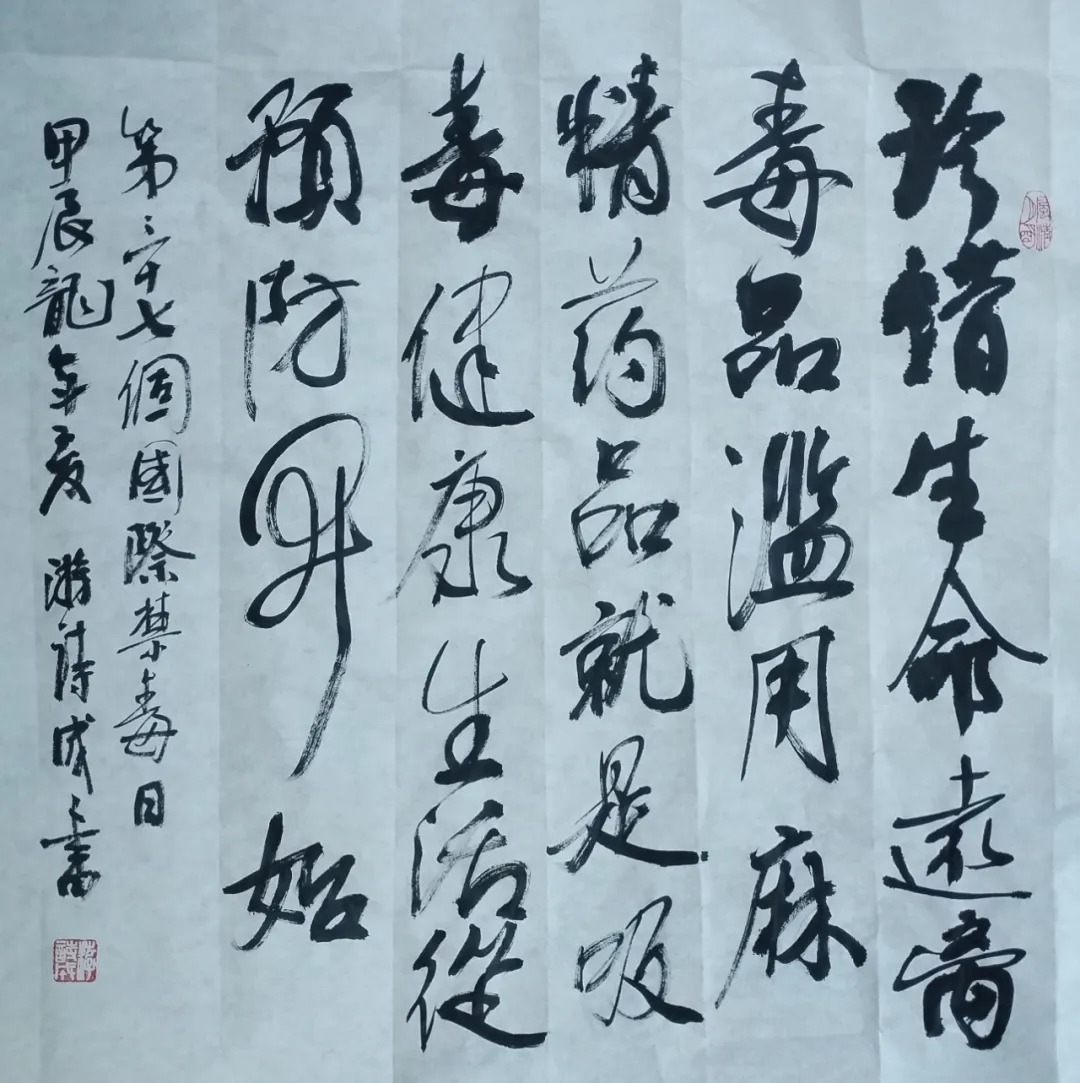 珍惜生命遠离
毒品滥用麻
精药品就是吸
毒健康生活從
預防開始
第三十七個國際禁毒日
甲辰龍年夏 游詩成書